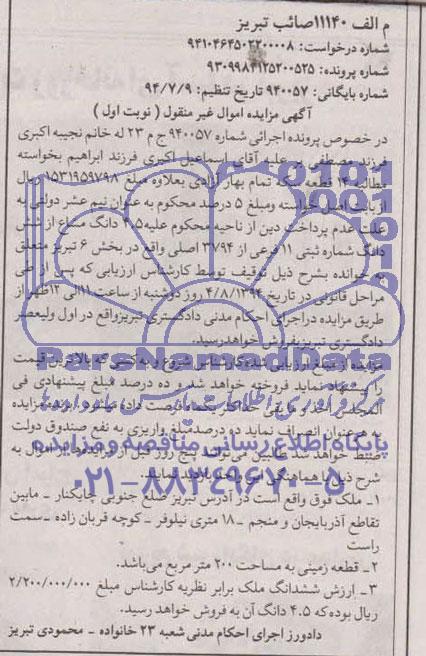 م الف ۱۱۱۴۰صائب تبریز
شماره درخواست: ۹۴۱۰۴۶۴۵۰۲۲۰۰۰۰۸
شماره پرونده: ۹۳۰۹۹۸۴۱۲۵۲۰۰۵۲۵
شماره بایگانی: ۹۴۰۰۵۷ تاریخ تنظیم: ۹۴/۷/۹
آگهی مزایده اموال غیر منقول ( نوبت اول )
در خصوص پرونده اجرائی شماره ۹۴۰۰۵۷ ج م ۲۳ له خانم نجیبه اکبری
فرزند مصطفی بر علیه آقای اسماعیل اکبری فرزند ابراهیم بخواسته
مطالبه ۱۴ قطعه سکه تمام بهار آزادی بعلاوه مبلغ ۱۵۳۱۹۵۹۷۹۸ ریال
از بابت اصل خواسته ومبلغ ۵ درصد محکوم به عنوان نیم عشر دولتی به
علت عدم پرداخت دین از ناحیه محکوم علیه ۴.۵ دانگ مشاع از شش
دانگ شماره ثبتی ۱۱ فرعی از ۳۷۹۴ اصلی واقع در بخش ۶ تبریز متعلق
به خوانده بشرح ذیل توقیف توسط کارشناس ارزیابی که پس از طی
مراحل قانونی در تاریخ ۴/۸/۱۳۹۴ روز دوشنبه از ساعت ۱۱الی ۱۲ظهر از
طریق مزایده دراجرای احکام مدنی دادگستری تبریزواقع در اول ولیعصر
دادگستری تبریزبفروش خواهدرسید.
مزایده از مبلغ ارزیابی شده کارشناس شروع و به کسی که بالاترین قیمت
را پیشنهاد نماید فروخته خواهد شد و ده درصد مبلغ پیشنهادی فی
المجلس اخذ و مابقی حداکثر یکماه فرصت داده
به هر عنوان انصراف نماید ده درصدمبلغ واریزی به نفع صندوق دولت
ضبط خواهد شد طالبین می‌توانند پنج روز قبل از مزایده از اموال به
شرح ذیل با هماهنگی این اجرا بازدید نمایند
۱_ ملک فوق واقع است در آدرس تبریز ضلع جنوبی چایکنار _ مابین
تقاطع آذربایجان و منجم _ ۱۸ متری نیلوفر _ کوچه قربان زاده _سمت
راست
۲_ قطعه زمینی به مساحت ۲۰۰ متر مربع می‌باشد.
۳_ ارزش ششدانگ ملک برابر نظریه کارشناس مبلغ ۲/۲۰۰/۰۰۰/۰۰۰
ریال بوده که ۴.۵ دانگ آن به فروش خواهد رسید.
دادورز اجرای احکام مدنی شعبه ۲۳ خانواده _ محمودی تبریز
ParsNamadData
پایگاه اطلاع رسانی مناقصه و مزایده
۰۲۱-۸۸۳۴۹۶۷۰-۵